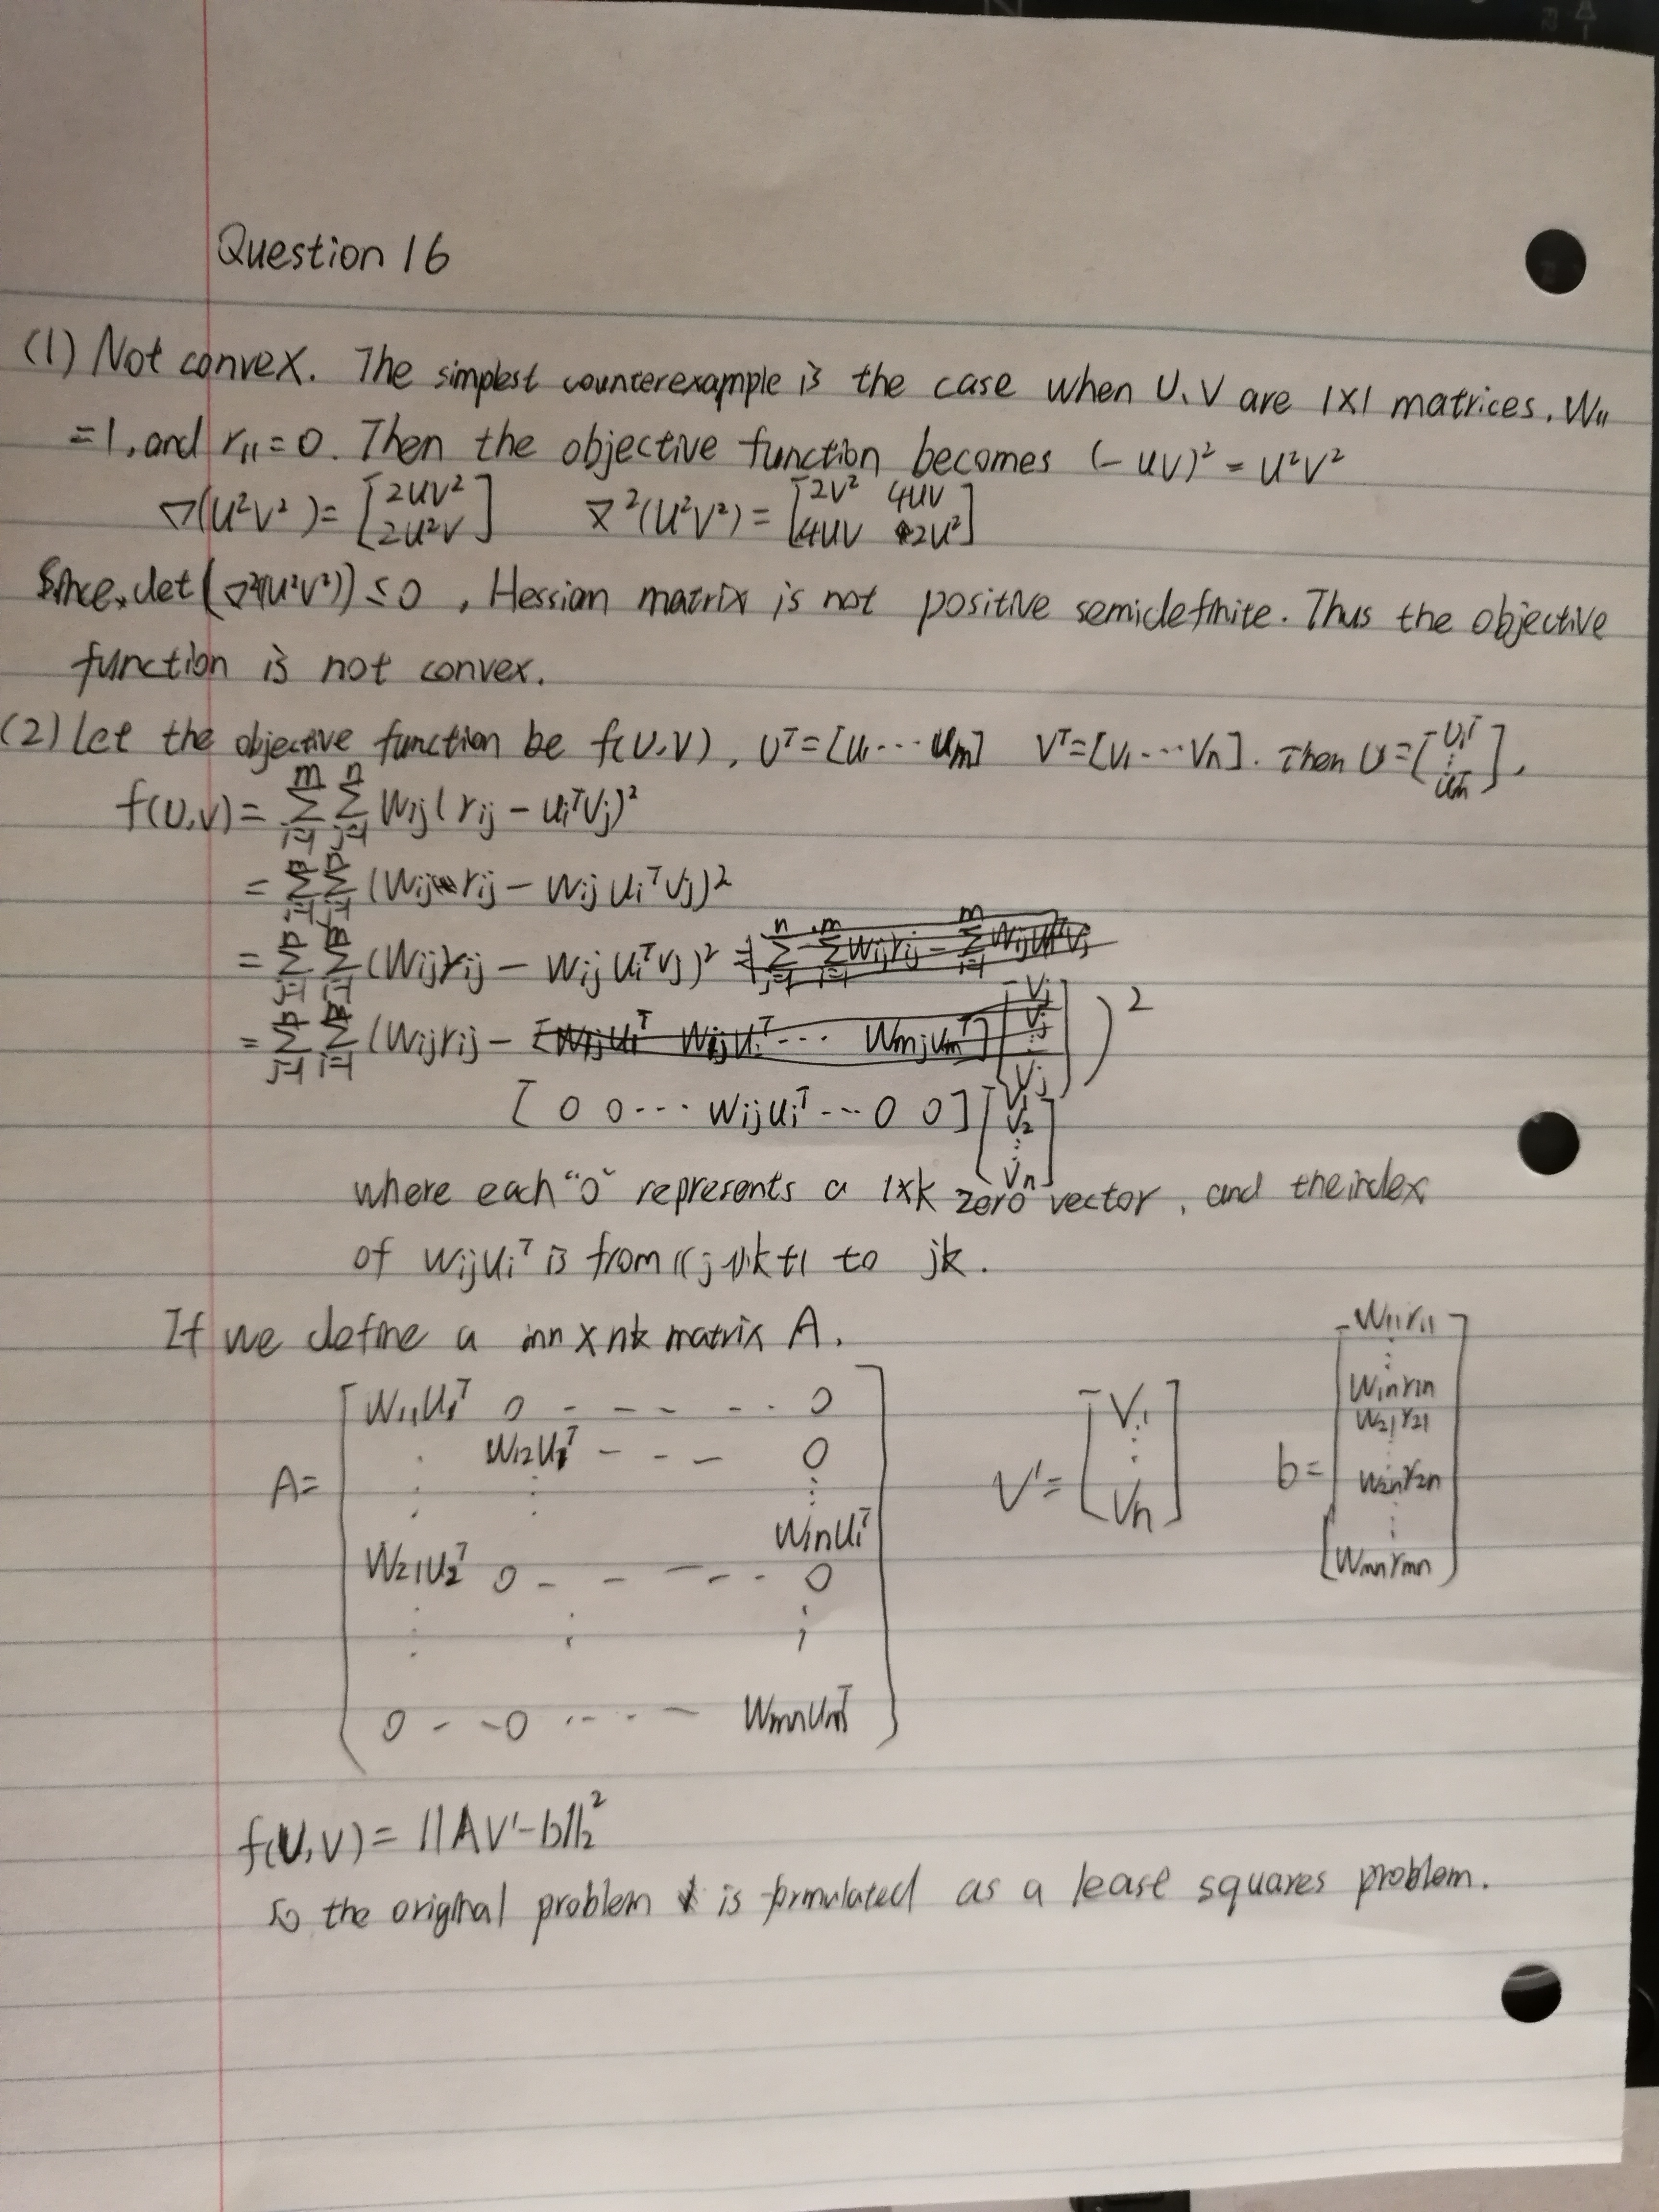 Question 16
(1) Not convex. The simplest counterexample is the case when U, V are 1×1 matrices, W₁₁
=1, and r₁₁=0. Then the objective function becomes (-uv)² = u²v²
∇(u²v²)= [2uv² ; 2u²v] ∇²(u²v²)= [2v² 4uv ; 4uv 2u²]
Since, det(∇²(u²v²)) ≤ 0, Hessian matrix is not positive semidefinite. Thus the objective
function is not convex.
(2) Let the objective function be f(U,V), Uᵀ=[u₁ ··· uₘ] Vᵀ=[v₁ ··· vₙ]. Then U=[u₁ᵀ ⋮ uₘᵀ],
f(U,V)= Σᵢ₌₁ᵐ Σⱼ₌₁ⁿ Wij(rij - uiᵀvj)²
= ΣΣ (Wij rij - Wij uiᵀvj)²
= ΣΣ (Wij rij - Wij uiᵀvj)²
= ΣΣ (Wij rij - )²
[0 0 ··· Wij uiᵀ ··· 0 0] [v₁ v₂ ⋮ vₙ]
where each "0" represents a 1×k zero vector, and the index
of Wij uiᵀ is from (j-1)k+1 to jk.
If we define a mn×nk matrix A.
A= [W₁₁u₁ᵀ 0 - - - - - 0
W₁₂u₁ᵀ - - - 0
⋮ ⋮ ⋮
W₁ₙu₁ᵀ
W₂₁u₂ᵀ 0 - - - - - 0
⋮ ⋮ ⋮
0 - - 0 ··· - - Wmnumᵀ]
V'= [v₁ ⋮ vₙ]
b= [W₁₁r₁₁ ⋮ W₁ₙr₁ₙ W₂₁r₂₁ ⋮ W₂ₙr₂ₙ ⋮ Wmnrmn]
f(U,V)= ||AV'-b||₂²
So the original problem is formulated as a least squares problem.